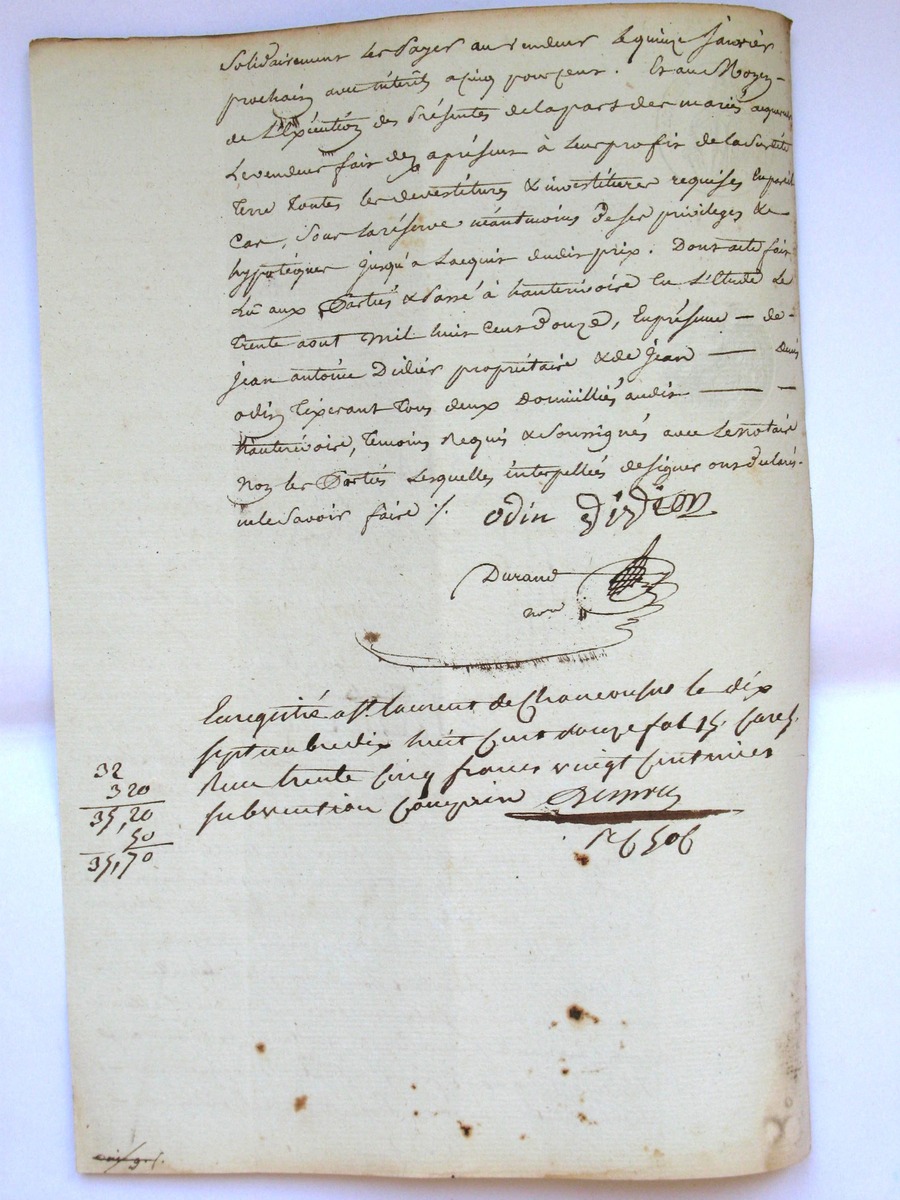 Solidairement les payer au vendeur le quinze Janvier
prochain avec intérêts a cinq pour cent. Et au Moyen
de L'Exécution des Présentes de la part des mariés acquereurs
Le vendeur fait dez aprésent à Leur profit de la Susdite
Terre toutes les devestitures & investitures requises En pareil
cas, sous la réserve néantmoins de ses privileges &
hypotéques jusqu'a Lacquit dudit prix. Dont acte fait
Lû aux Partiés & Passé à hauterivoire En L'Etude Le
trente aout Mil huit Cent Douze, En présence — de -
jean antoine Didier propriétaire & de jean — Denis
odin Tixerant Tous deux Domiciliés audit — —
hauterivoire, temoins Requis & Soussignés avec Le notaire
Non les Partiés Lesquelles interpellées de signer ont déclaré
ne le Savoir faire ./.
odin didier
Durand
nore
Enregistré a St. laurent de Chamousset le dix
septembre dix huit Cent douze fol 15. Care 5.
Recu trente Cinq francs vingt Centimes
subvention Comprise
32
3 20
35,20
50
35,70